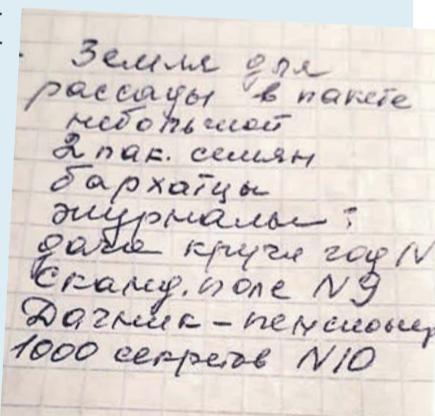 Земля для
рассады в пакете
небольшой
2 пак. семян
бархатцы
журналы:
дача кругл год N
Сканд. поле N9
Дачник – пенсионер
1000 секретов N10